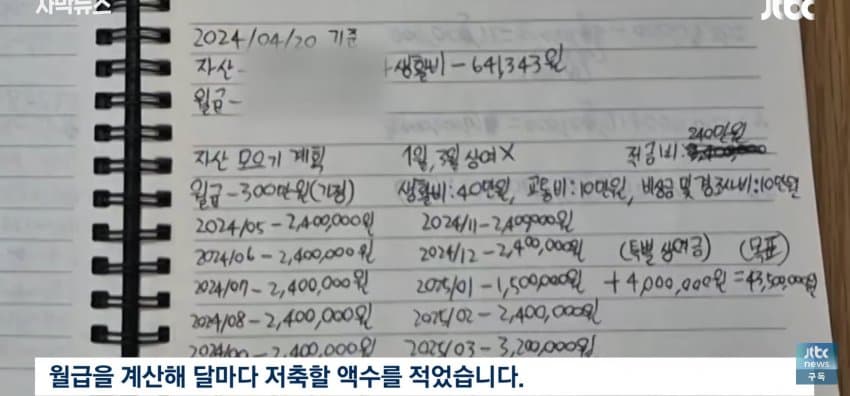 자막뉴스
jtbc
2024/04/20 기준
자산- +생활비-641,343원
월급-
240만원
자산 모으기 계획 1월, 3월 상여X 적금비:
월급-300만원(가정) 생활비:40만원, 교통비:10만원, 비상금 및 경조사비:10만원
2024/05-2,400,000원 2024/11-2,400,000원
2024/06-2,400,000원 2024/12-2,400,000원 (특별 상여금) (목표)
2024/07-2,400,000원 2025/01-1,500,000원 +4,000,000원=43,500,000원
2024/08-2,400,000원 2025/02-2,400,000원
2,400,000원 2025/03-3,200,000원
월급을 계산해 달마다 저축할 액수를 적었습니다.
jtbc
news
구독